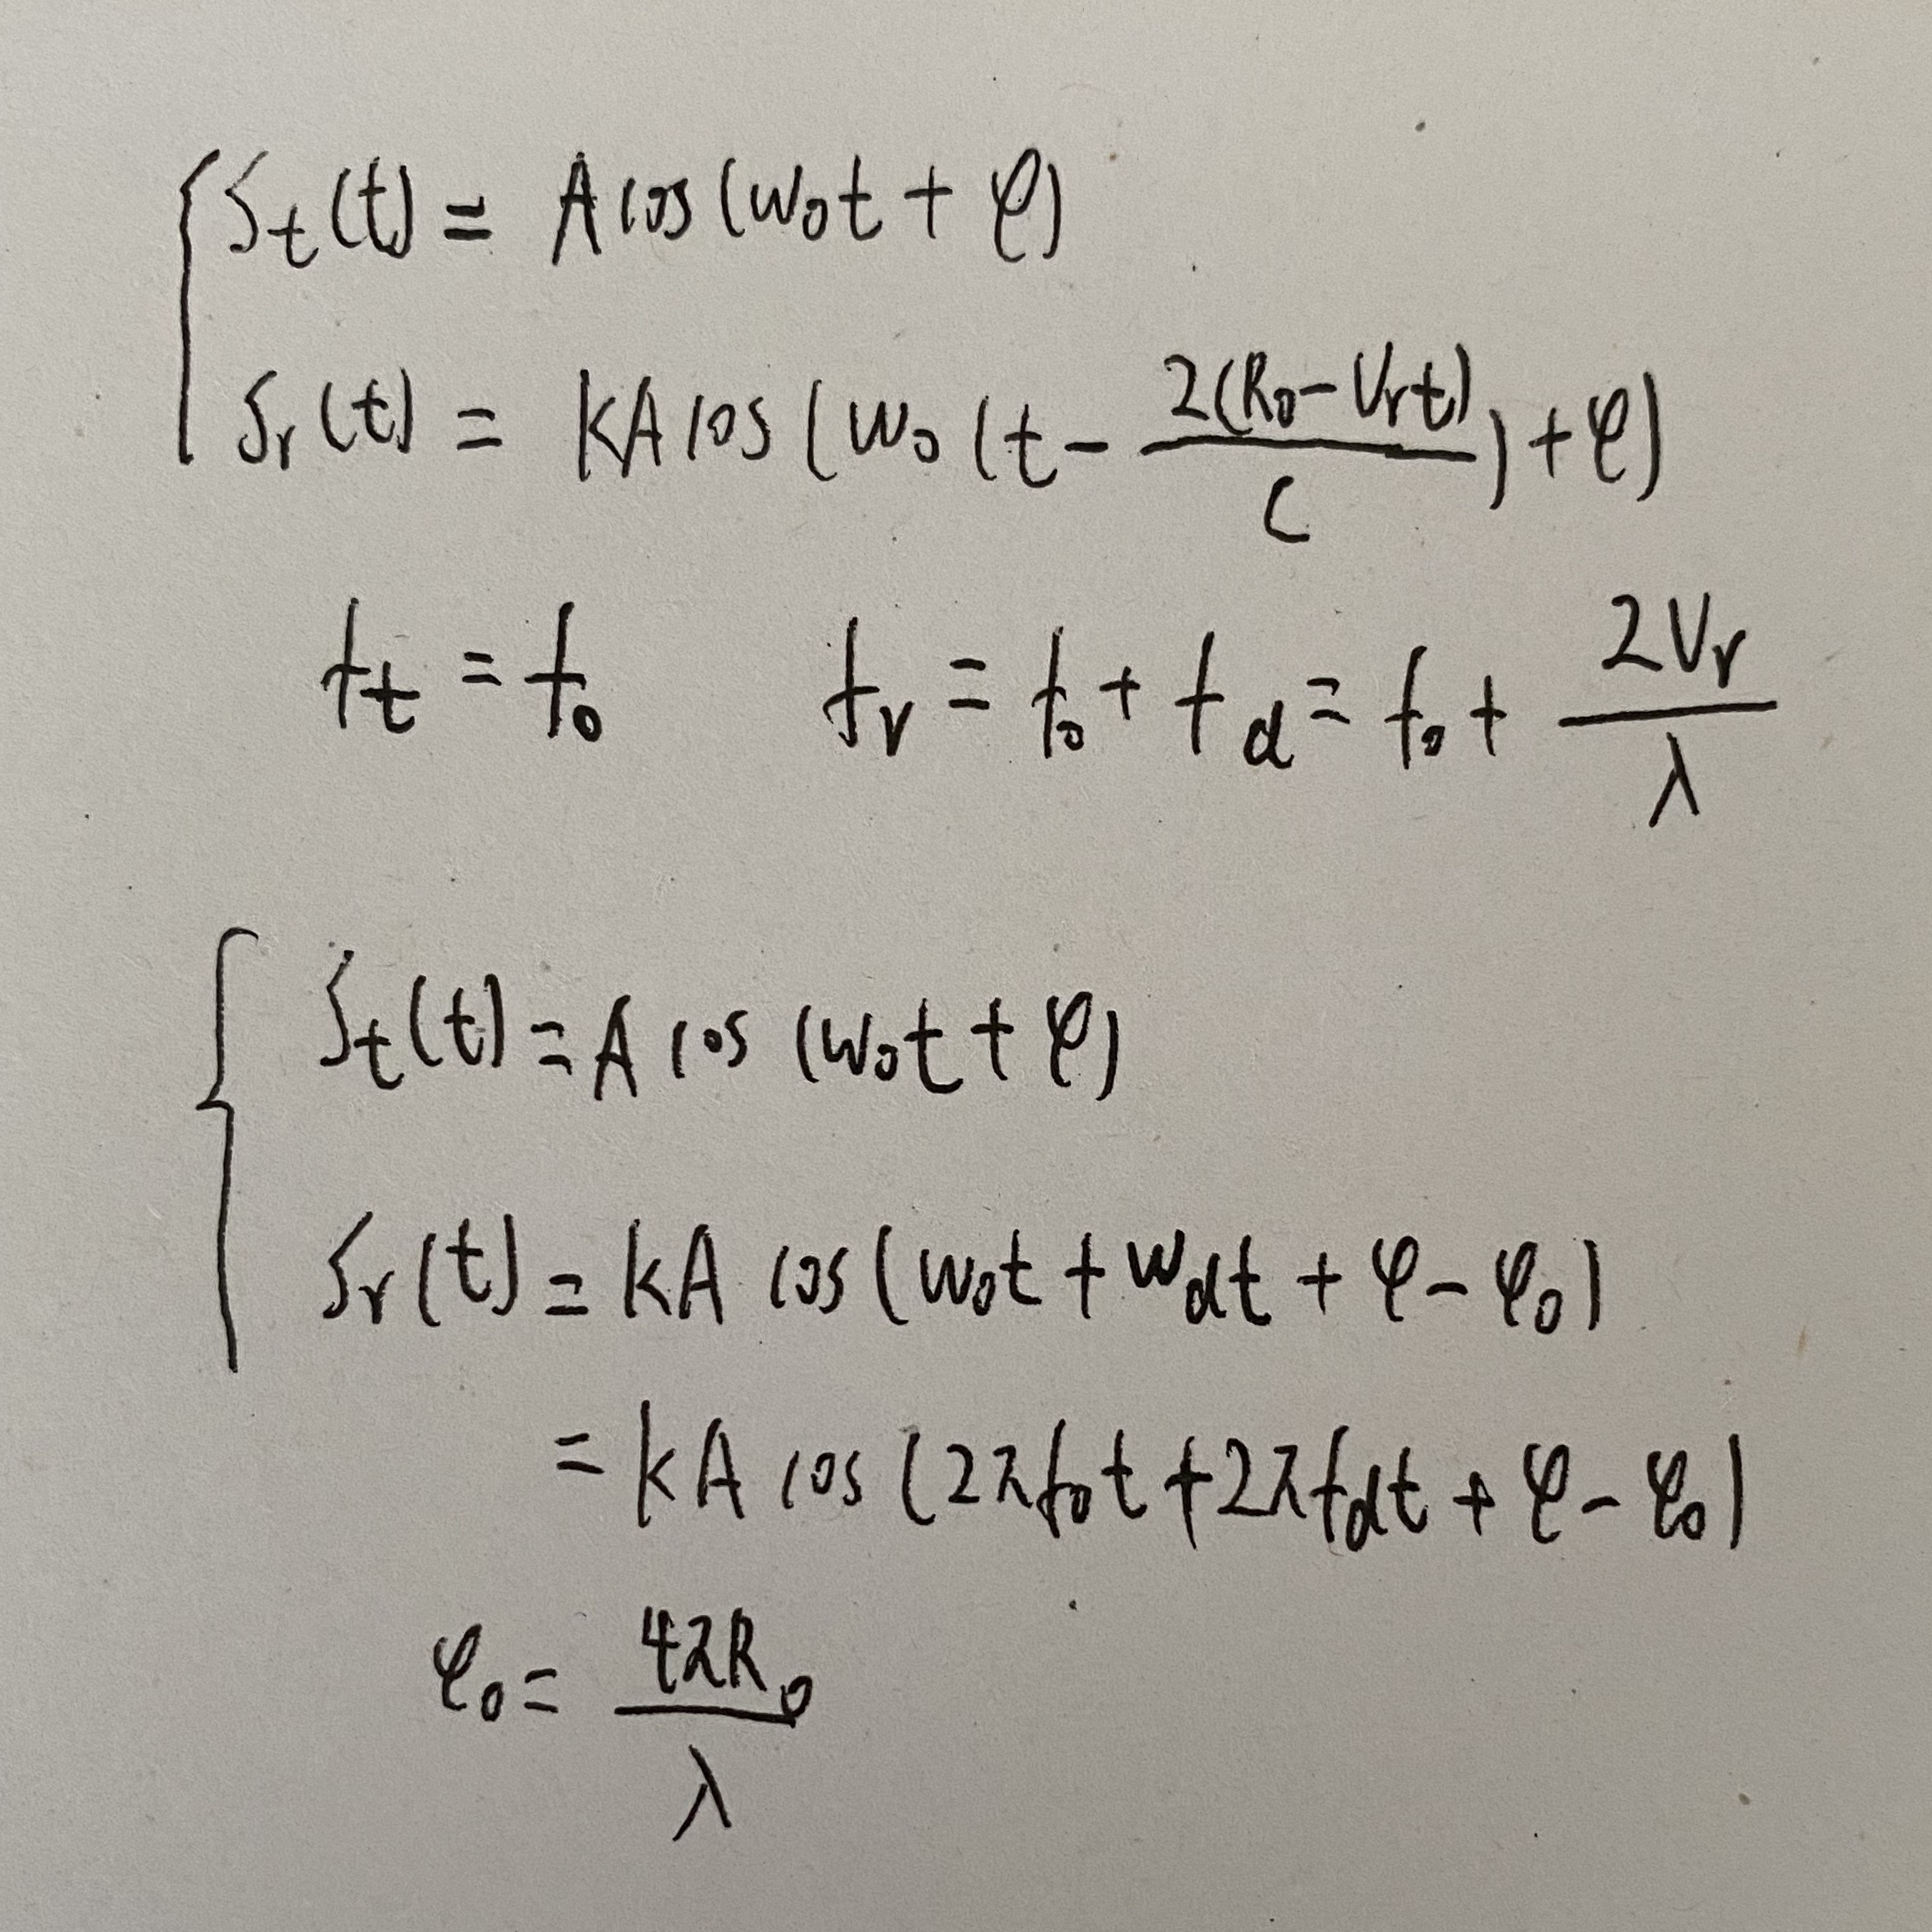 S_t(t) = A cos(w₀t + φ)
S_r(t) = kA cos(w₀(t - 2(R₀ - V_r t)/C) + φ)
f_t = f₀    f_r = f₀ + f_d = f₀ + 2V_r/λ
S_t(t) = A cos(w₀t + φ)
S_r(t) = kA cos(w₀t + w_d t + φ - φ₀)
= kA cos(2πf₀t + 2πf_d t + φ - φ₀)
φ₀ = 4πR₀/λ